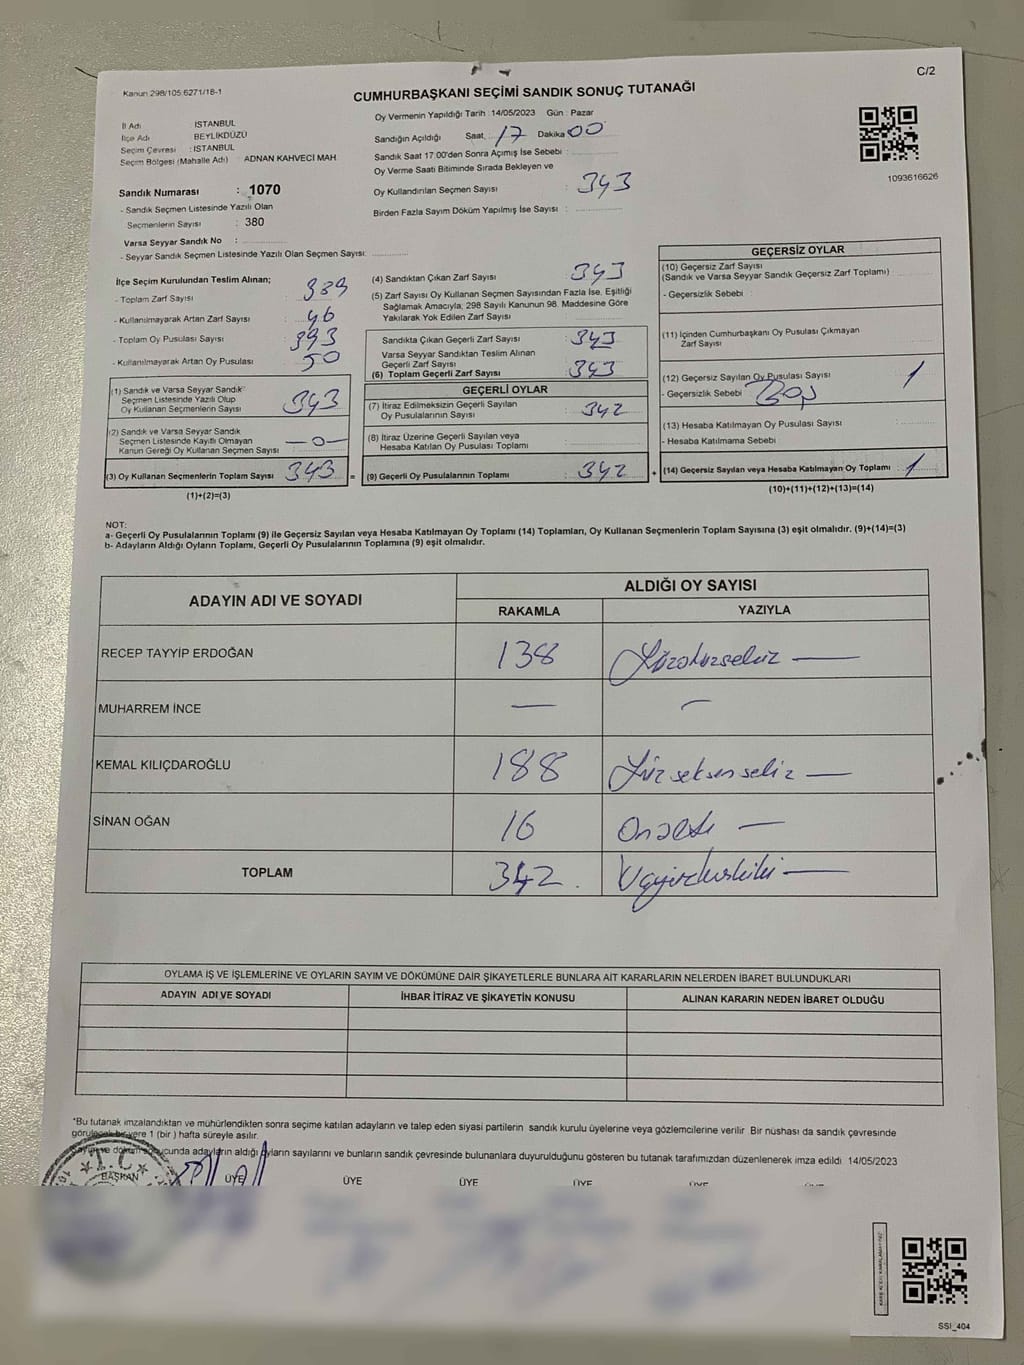 C/2
Kanun 298/105.6271/18-1
CUMHURBAŞKANI SEÇİMİ SANDIK SONUÇ TUTANAĞI
İl Adı : İSTANBUL
İlçe Adı : BEYLİKDÜZÜ
Seçim Çevresi : İSTANBUL
Seçim Bölgesi (Mahalle Adı) : ADNAN KAHVECİ MAH
Sandık Numarası : 1070
- Sandık Seçmen Listesinde Yazılı Olan
Seçmenlerin Sayısı : 380
Varsa Seyyar Sandık No :
- Seyyar Sandık Seçmen Listesinde Yazılı Olan Seçmen Sayısı:
Oy Vermenin Yapıldığı Tarih : 14/05/2023 Gün : Pazar
Sandığın Açıldığı Saat 17 Dakika 00
Sandık Saat 17.00'den Sonra Açımış İse Sebebi :
Oy Verme Saati Bitiminde Sırada Bekleyen ve
Oy Kullandırılan Seçmen Sayısı : 343
Birden Fazla Sayım Döküm Yapılmış İse Sayısı :
1093616626
İlçe Seçim Kurulundan Teslim Alınan;
- Toplam Zarf Sayısı : 389
- Kullanılmayarak Artan Zarf Sayısı : 46
- Toplam Oy Pusulası Sayısı : 393
- Kullanılmayarak Artan Oy Pusulası : 50
(1) Sandık ve Varsa Seyyar Sandık
Seçmen Listesinde Yazılı Olup
Oy Kullanan Seçmenlerin Sayısı : 343
(2) Sandık ve Varsa Seyyar Sandık
Seçmen Listesinde Kayıtlı Olmayan
Kanun Gereği Oy Kullanan Seçmen Sayısı : —0—
(3) Oy Kullanan Seçmenlerin Toplam Sayısı : 343 =
(1)+(2)=(3)
(4) Sandıktan Çıkan Zarf Sayısı : 343
(5) Zarf Sayısı Oy Kullanan Seçmen Sayısından Fazla İse, Eşitliği
Sağlamak Amacıyla, 298 Sayılı Kanunun 98. Maddesine Göre
Yakılarak Yok Edilen Zarf Sayısı :
Sandıkta Çıkan Geçerli Zarf Sayısı : 343
Varsa Seyyar Sandıktan Teslim Alınan
Geçerli Zarf Sayısı :
(6) Toplam Geçerli Zarf Sayısı : 343
GEÇERLİ OYLAR
(7) İtiraz Edilmeksizin Geçerli Sayılan
Oy Pusulalarının Sayısı : 342
(8) İtiraz Üzerine Geçerli Sayılan veya
Hesaba Katılan Oy Pusulası Toplamı :
(9) Geçerli Oy Pusulalarının Toplamı : 342 +
GEÇERSİZ OYLAR
(10) Geçersiz Zarf Sayısı
(Sandık ve Varsa Seyyar Sandık Geçersiz Zarf Toplamı) :
- Geçersizlik Sebebi :
(11) İçinden Cumhurbaşkanı Oy Pusulası Çıkmayan
Zarf Sayısı :
(12) Geçersiz Sayılan Oy Pusulası Sayısı : 1
- Geçersizlik Sebebi : Boş
(13) Hesaba Katılmayan Oy Pusulası Sayısı :
- Hesaba Katılmama Sebebi :
(14) Geçersiz Sayılan veya Hesaba Katılmayan Oy Toplamı : 1
(10)+(11)+(12)+(13)=(14)
NOT:
a- Geçerli Oy Pusulalarının Toplamı (9) ile Geçersiz Sayılan veya Hesaba Katılmayan Oy Toplamı (14) Toplamları, Oy Kullanan Seçmenlerin Toplam Sayısına (3) eşit olmalıdır. (9)+(14)=(3)
b- Adayların Aldığı Oyların Toplamı, Geçerli Oy Pusulalarının Toplamına (9) eşit olmalıdır.
ADAYIN ADI VE SOYADI ALDIĞI OY SAYISI
RAKAMLA YAZIYLA
RECEP TAYYİP ERDOĞAN 138 Yüzotuzsekiz —
MUHARREM İNCE — —
KEMAL KILIÇDAROĞLU 188 Yüzseksensekiz —
SİNAN OĞAN 16 Onaltı —
TOPLAM 342. Üçyüzkırkiki —
OYLAMA İŞ VE İŞLEMLERİNE VE OYLARIN SAYIM VE DÖKÜMÜNE DAİR ŞİKAYETLERLE BUNLARA AİT KARARLARIN NELERDEN İBARET BULUNDUKLARI
ADAYIN ADI VE SOYADI İHBAR İTİRAZ VE ŞİKAYETİN KONUSU ALINAN KARARIN NEDEN İBARET OLDUĞU
*Bu tutanak imzalandıktan ve mühürlendikten sonra seçime katılan adayların ve talep eden siyasi partilerin sandık kurulu üyelerine veya gözlemcilerine verilir Bir nüshası da sandık çevresinde
görülecek bir yere 1 (bir ) hafta süreyle asılır.
Sayım ve döküm sonucunda adayların aldığı oyların sayılarını ve bunların sandık çevresinde bulunanlara duyurulduğunu gösteren bu tutanak tarafımızdan düzenlenerek imza edildi 14/05/2023
T.C
BAŞKAN ÜYE ÜYE ÜYE ÜYE ÜYE
SSI_404